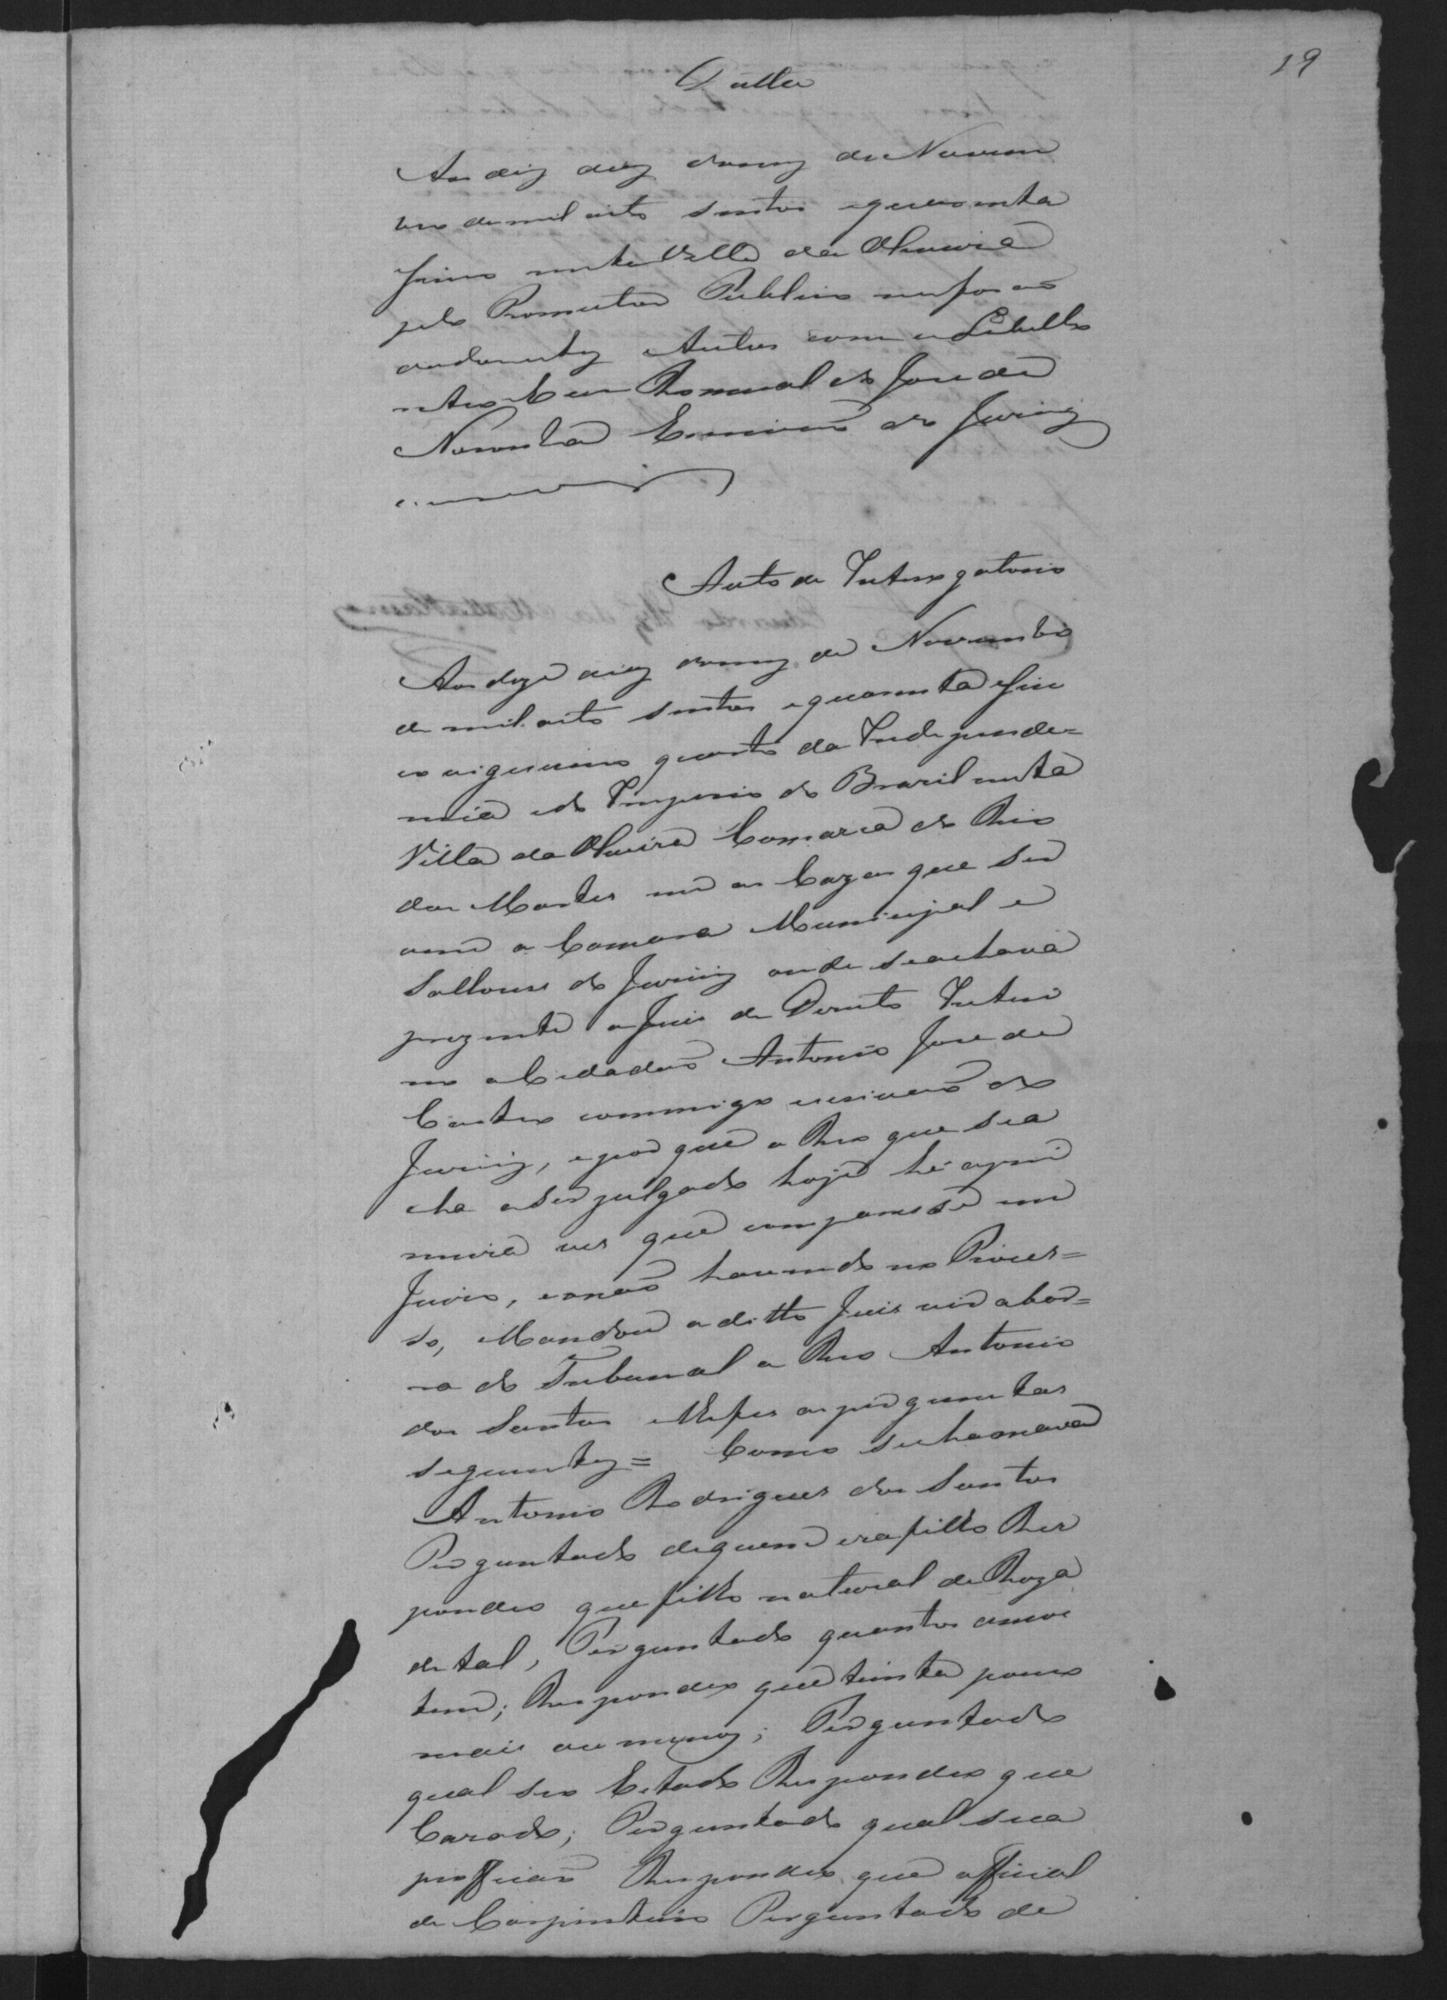 19
Datta
Aos dez dias do mez de Novem
bro de mil oito sentos e quarenta
sinco nesta Villa da Oliveira
pelo Promutor Publico me foraõ
dados estes Autos com o Libello
retro e eu Romualdo Jose de
Noronha Escrivaõ do Jurÿ
escrevi
Auto de Interrogatorio
Aos doze dias do mez de Novembro
de mil oito sentos e quarenta e sin
co vigessimo quarto da Independe=
ncia e do Imperio do Brazil nesta
Villa da Oliveira Comarca do Rio
das Mortes em as Cazas que ser
vem a Camara Municipal e
Sallouns do Jurÿ onde se achava
prezente o Juis de Direito Interi
no o Cidadaõ Antonio Jose de
Castro commigo escrivaõ do
Jurÿ, e por que o Reo que se a
cha a ser julgado hoje he a pri
meira ves que comparesse em
Juizo, e naõ havendo no Proces=
so, Mandou o ditto Juis vir a bar=
ra do Tribunal o Reo Antonio
dos Santos e lhe fes as perguntas
seguintes = Como se chamava
Antonio Rodrigues dos Santos
Perguntado de quem era filho Res
pondeo que filho natural de Roza
de tal, Perguntado quantos annos
tem; Respondeo que trinta pouco
mais ou menos; Perguntado
qual seo Estado Respondeo que
Cazado; Perguntado qual sua
proffiçaõ Respondeo que official
de Carpinteiro Perguntado de